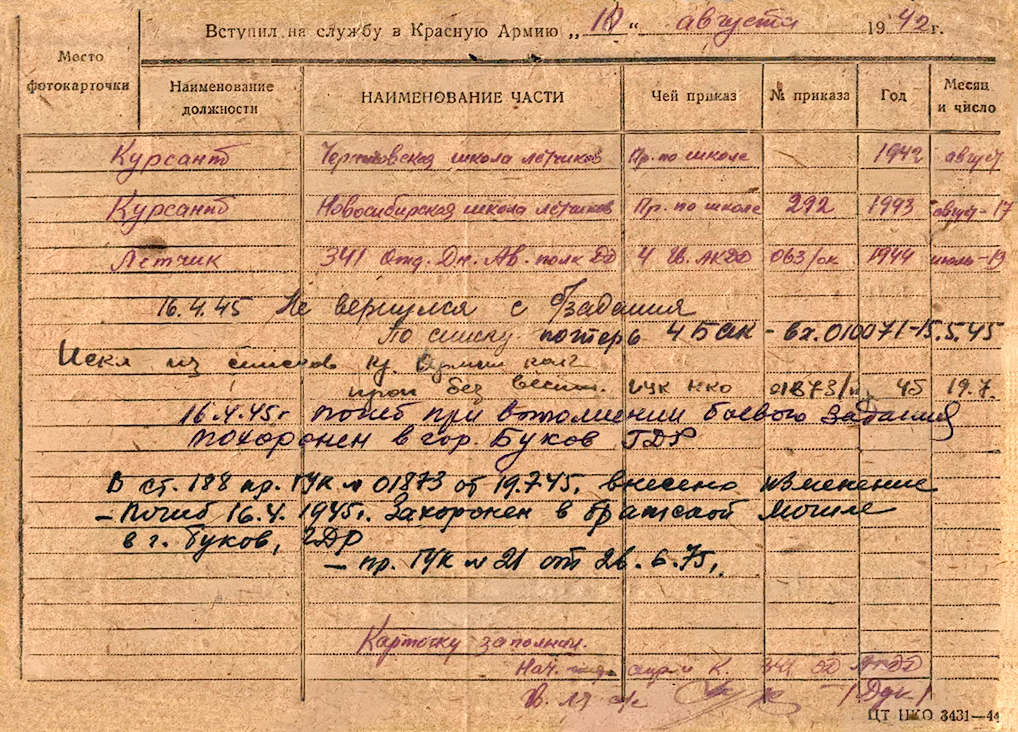 Вступил на службу в Красную Армию „10“ августа 1942 г.
Место фотокарточки
Наименование должности
НАИМЕНОВАНИЕ ЧАСТИ
Чей приказ
№ приказа
Год
Месяц и число
Курсант школа летчиков Пр. по школе - 1942 август
Курсант Новосибирская школа летчиков Пр. по школе 292 1943 август-17
Летчик 341 Отд. Дн. Ав. полк ДД 4 Гв. АКДД 063/ок 1944 июль-19
16.4.45 Не вернулся с б/задания
По списку потерь 4 БАК - вх. 010071-15.5.45
Искл из списков Кр. Армии как
проп без вести. ГУК НКО 01873/ 45 19.7.
16.4.45г погиб при выполнении боевого задания
похоронен в гор. Буков ГДР
В ст. 188 пр. ГУК № 01873 от 19.7.45г. внесено изменение
- Погиб 16.4.1945г. Захоронен в братской могиле
в г. Буков, ГДР
- пр. ГУК № 21 от 26.6.75г.
Карточку заполнил.
Нач. К. 341 АКДД
ЦТ НКО 3431—44